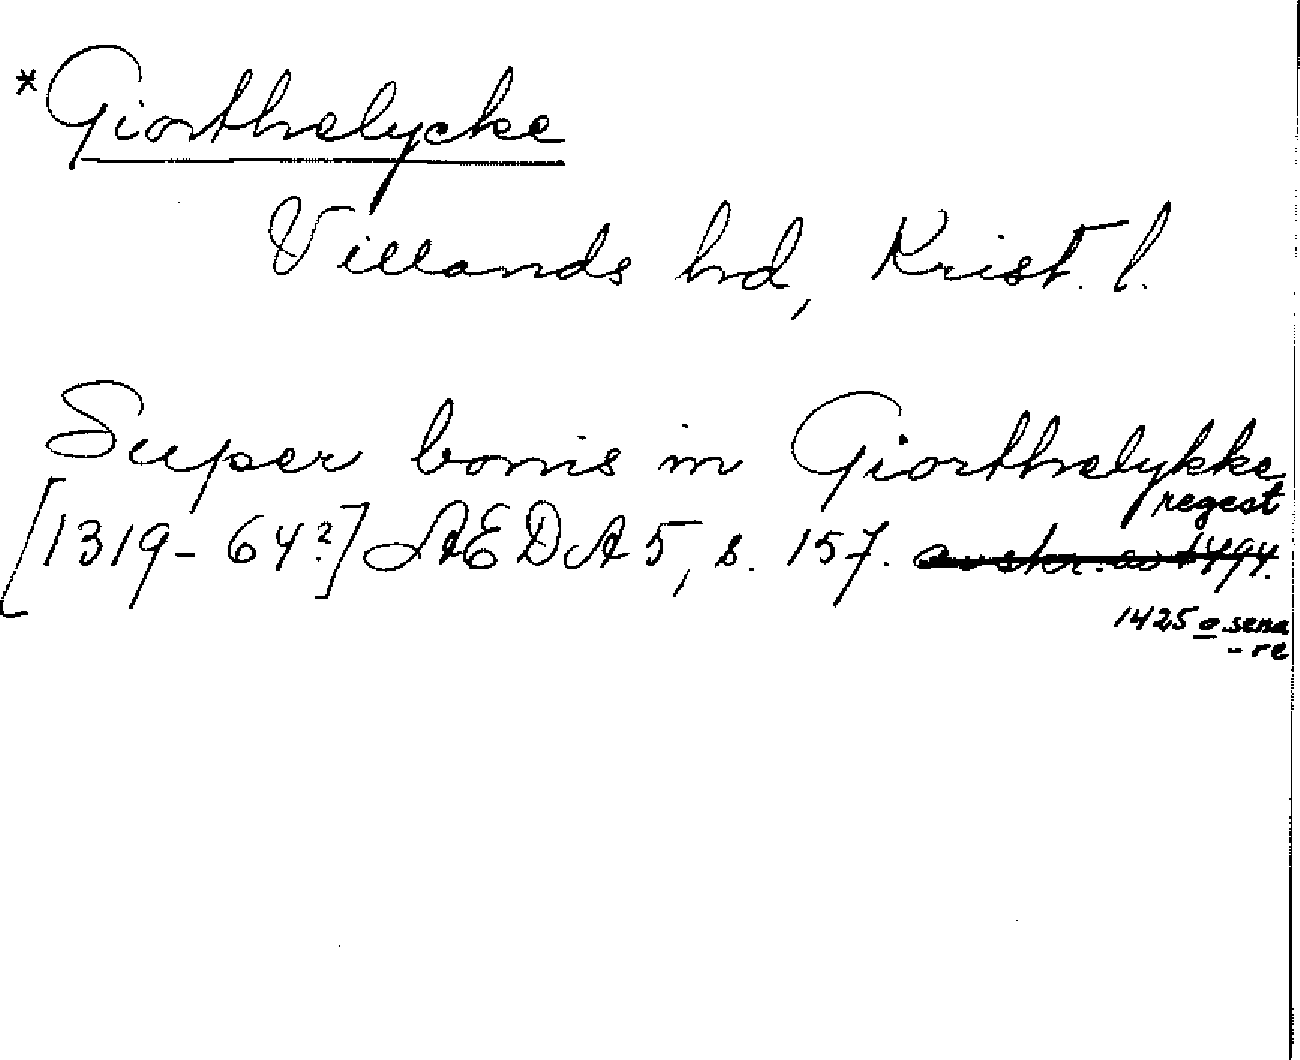 *Giorthelycke
Villands hd, Krist. l.
Super bonis in Giorthelykke
regest
[1319-64?] ÆDA 5, s. 157. avskr. av 1494.
1425 o. sena
-re